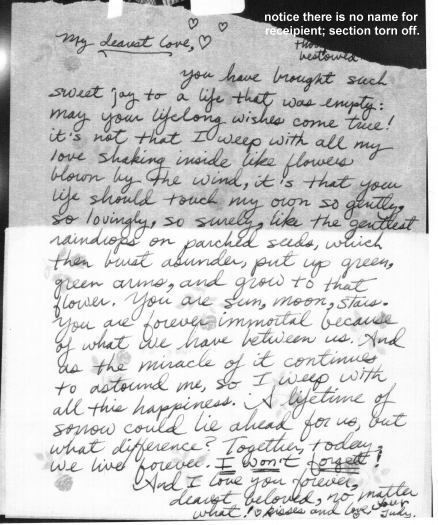 notice there is no name for
receipient; section torn off.
My dearest Love, ♡
bestowed
you have brought such
sweet joy to a life that was empty:
may your lifelong wishes come true!
it's not that I weep with all my
love shaking inside like flowers
blown by the wind, it's that your
life should touch my own so gently,
so lovingly, so surely, like the gentlest
raindrops on parched seeds, which
then burst asunder, put up green,
green arms, and grow to that
flower. You are sun, moon, stars.
You are forever immortal because
of what we have between us. And
as the miracle of it continues
to astound me, so I weep with
all this happiness. A lifetime of
sorrow could lie ahead for us, but
what difference? Together, today,
we live forever. I won't forget!
And I love you forever,
dearest beloved, no matter
what! ♡ kisses and love, Your
Judy.